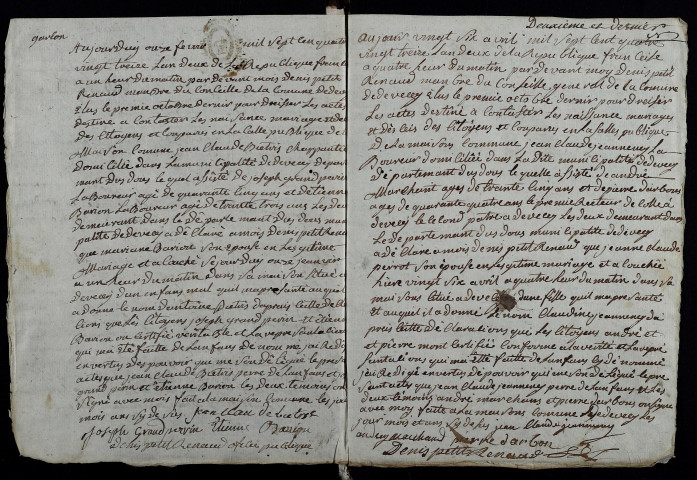 garson
Aujourduy onze fevrie mil sept cent quatre
vingt treize landeux de la Republique francese
a un heur du matin par devant mois denis petit
Renaud manbre du Conseille de la Comune de devecey
Elus le premie octobre dernir pour dreiser les actes
destiné a Contaster Les naisance mariage et deces
des Citoyens et Conpares en la salle publique de la
Maison Comune jean Claude Bietrix charpantie
domicilié dans La municipalité de devecey depar
mant du dous le quel asisté de joseph grand perrin
Laboureur agé de quarante cinq ans et d'étienne
Barion Laboureur agé de trante trois ans Les deux
demeurant dans le de parlemant du dous muni
palité de devecey a déclaré a mois Denis petit Renaud
que mariane Bariot son épouse en Lesgitime
Mariage et a Couché Se jourduy onze jeanvier
a un heur du matin dans sa mai son Située a
devecey dun enfans mal quil ma presanté auquel
a donne le nom de Bietrix da preis Cette decla
lions que Les Citoyens joseph grand perin et étienne
Barion on Certifié veritable et la represantation
qui ma été faitte de lanfans denomé jai Redigé
en vertus des pouvoir qui me son délégué le presan
acte que jean Claude Bietrix perre de Lanfans et joseph
grand perin et étienne Barion les deux temoins on
Signé avec mois fait a la maison Comune les jour
mois ans sy de sus jean Claude bietrix
Joseph Grandperrin Etienne Barion
denis petit Renaud oficié publique
Deuxieme et dernier
aujourduy vingt six avril mil sept Cent quatre
vingt treize Lan deux de la Republique francaise
a quatre heur du matin par devant moy Denis petit
Renaud manbre du Conseille general de la Comune
de devecey Elus le premie octobre dernir pour dreiser
Les actes destiné à Contaster Les naissance mariages
et déceis des Citoyens et Conpares en la Salle publique
De La maison Commune jean Claude jeanneney La
Boureur domicilié dans La dite municipalité de devecey
département du dous le quelle asisté de andré
Marchant ages de trante cinq ans et de pierre darbon
ages de quarante quatre ans le premie Recteur decole a
devecey le second patre a devecey Les deux demeurant dans
Le département du dous municipalité de devecey
a déClare a mois denis petit Renaud que jeanne Claude
perrot son épouse en Lesgitime mariage et a Couchée
hiere vingt six avril a quatre heur du matin dans sa
maison Située a devecey dune fille quil ma presanté
et auquel il a donné Le nom Claudine jeanneney da
preis Cette dé Clarations que Les Citoyens andré et
et pierre mont Certifié Conforme a la verité et la repre
santations qui ma été faitte de Lanfans sy de nommé
jai Redigé en vertus de pouvoir qui me son délégué le pre
sant acte que jean Claude jeanneney perre de Lanfans et Les
deux témoins andré marchans et pierre darbons on Signé
avec moy faitte a La maison Comune de devecey Les
jour mois et ans sy de sus jean Claude jeanneney
andrey marchand pierre darbon
Denis petit Renaud